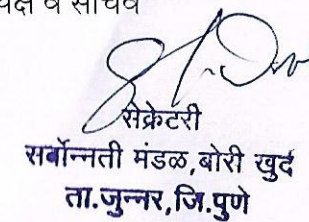 व सचिव
सेक्रेटरी
सर्वोन्नती मंडळ,बोरी खुर्द
ता.जुन्नर,जि.पुणे